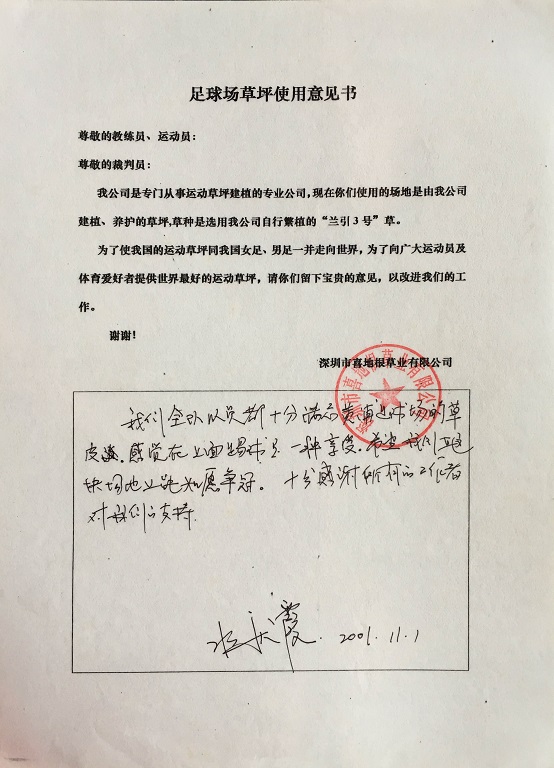 足球场草坪使用意见书
尊敬的教练员、运动员：
尊敬的裁判员：
我公司是专门从事运动草坪建植的专业公司，现在你们使用的场地是由我公司
建植、养护的草坪,草种是选用我公司自行繁植的“兰引3号”草。
为了使我国的运动草坪同我国女足、男足一并走向世界，为了向广大运动员及
体育爱好者提供世界最好的运动草坪，请你们留下宝贵的意见，以改进我们的工
作。
谢谢！
深圳市喜地根草业有限公司
深圳市喜地根草业有限公司
我们全队队员都十分满意贵 球场的草
皮 ，感觉在上面踢球是一种享受。希望我们 
块场地上 如愿争冠。十分感谢所有的工作者
对我们的支持
水庆霞. 2001.11.1